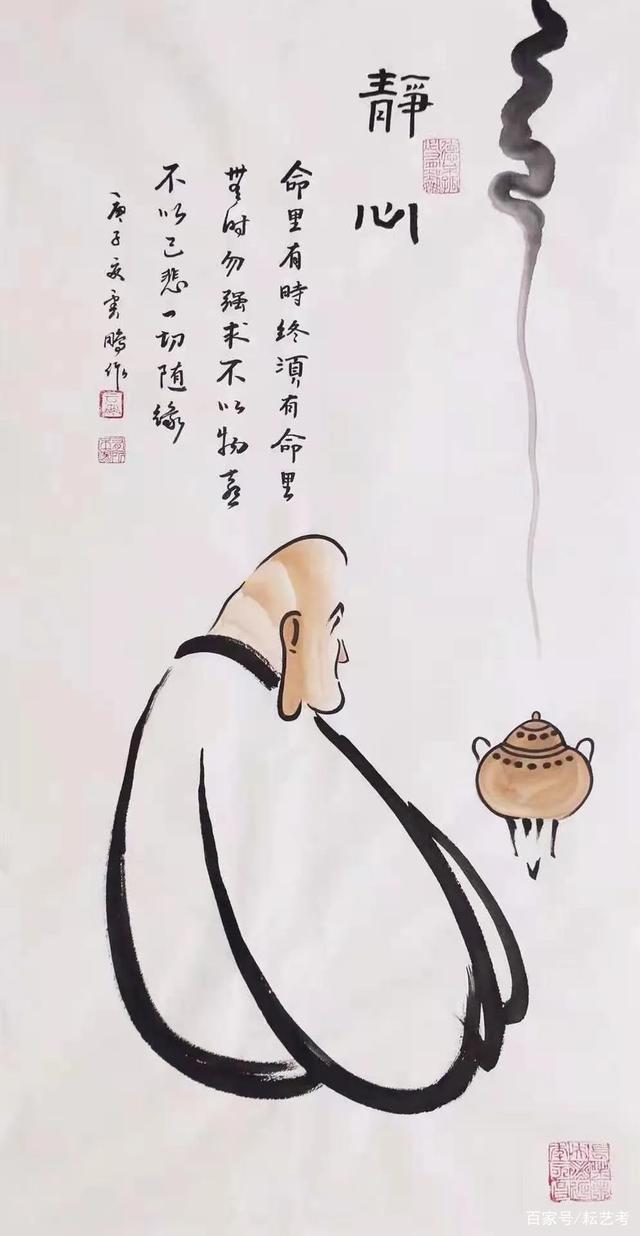 靜心
命里有時終須有命里
無时勿强求不以物喜
不以己悲一切随缘
庚子夏雲鹏作
百家号/耘艺考